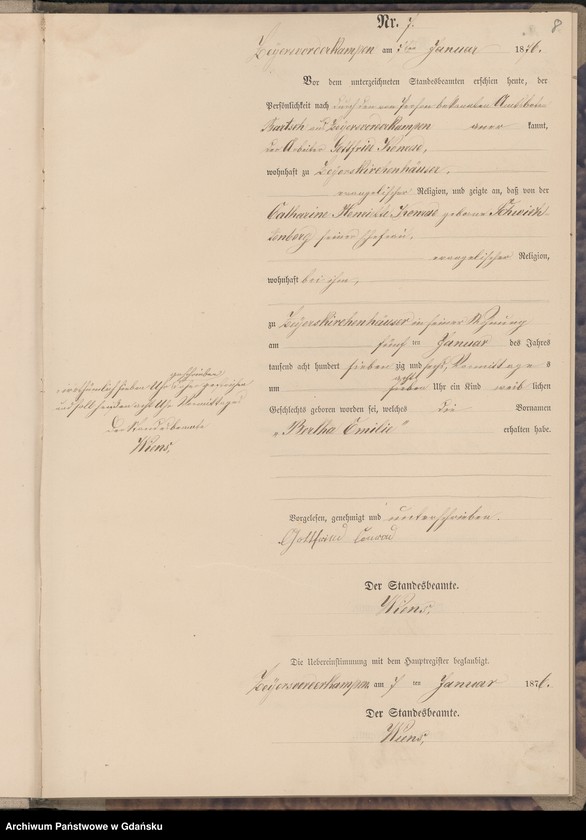 8
Nr. 7.
Zeyersvorderkampen am 7ten Januar 1876.
Vor dem unterzeichneten Standesbeamten erschien heute, der
Persönlichkeit nach durch den von Person bekannten Amtsboten
Bartsch aus Zeyersvorderkampen kannt,
der Arbeiter Gottfried Konrad,
wohnhaft zu Zeyerskirchenhäuser,
evangelischer Religion, und zeigte an, daß von der
Catharine Konrad geborne
seiner Ehefrau,
evangelischer Religion,
wohnhaft bei ihm,
zu Zeyerskirchenhäuser in seiner Wohnung
am fünf ten Januar des Jahres
tausend acht hundert sieben zig und sechs, Vormittags
um acht sieben Uhr ein Kind weib lichen
Geschlechts geboren worden sei, welches die Vornamen
„Bertha Emilie“ erhalten habe.
geschrieben
sieben Uhr
und soll heißen acht Uhr Vormittags
Der Standesbeamte
Wiens.
Vorgelesen, genehmigt und unterschrieben.
Gottfried Conrad
Der Standesbeamte.
Wiens.
Die Uebereinstimmung mit dem Hauptregister beglaubigt.
Zeyersvorderkampen am 7 ten Januar 1876.
Der Standesbeamte.
Wiens.
Archiwum Państwowe w Gdańsku